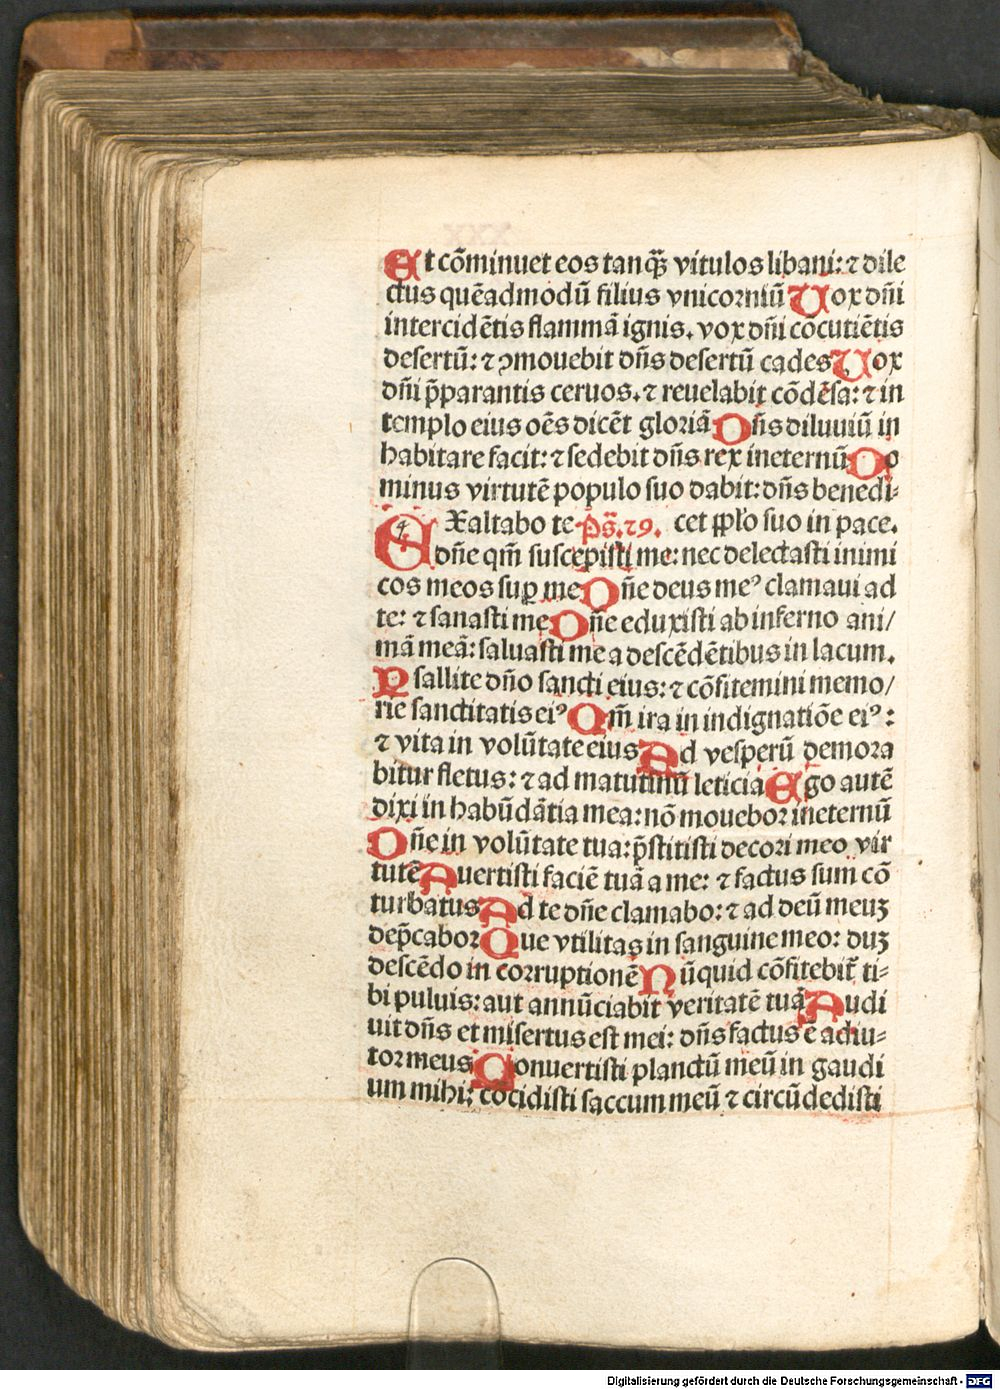 Et cōminuet eos tanqꝫ̄ vitulos libani: ⁊ dile
ctus quēadmodū filius vnicorniū Uox dñi
intercidētis flammā ignis. vox dñi cōcutiētis
desertū: ⁊ ꝯmouebit dñs desertū cades Uox
dñi p̄parantis ceruos. ⁊ reuelabit cōdēsa: ⁊ in
templo eius oēs dicēt gloriā Dñs diluuiū in
habitare facit: ⁊ sedebit dñs rex ineternū Do
minus virtutē populo suo dabit: dñs benedi-
Exaltabo te Ps̄. 29. cet pp̄lo suo in pace.
dñe qm̄ suscepisti me: nec delectasti inimi
cos meos suꝑ me Dñe deus meꝰ clamaui ad
te: ⁊ sanasti me Dñe eduxisti ab inferno ani/
mā meā: saluasti me a descēdētibus in lacum.
Psallite dño sancti eius: ⁊ cōfitemini memo/
rie sanctitatis eiꝰ Qm̄ ira in indignatiōe eiꝰ:
⁊ vita in volūtate eius Ad vesperū demora
bitur fletus: ⁊ ad matutinū leticia Ego autē
dixi in habūdātia mea: nō mouebor ineternū
Dñe in volūtate tua: p̄stitisti decori meo vir
tutē Auertisti faciē tuā a me: ⁊ factus sum cō
turbatus Ad te dñe clamabo: ⁊ ad deū meuꝫ
dep̄cabor Que vtilitas in sanguine meo: duꝫ
descēdo in corruptionē Nūquid cōfitebit᷑ ti-
bi puluis: aut annūciabit veritatē tuā Audi
uit dñs et misertus est mei: dñs factus ē adiu-
tor meus Conuertisti planctū meū in gaudi
um mihi: cōcidisti saccum meū ⁊ circūdedisti
Digitalisierung gefördert durch die Deutsche Forschungsgemeinschaft - DFG